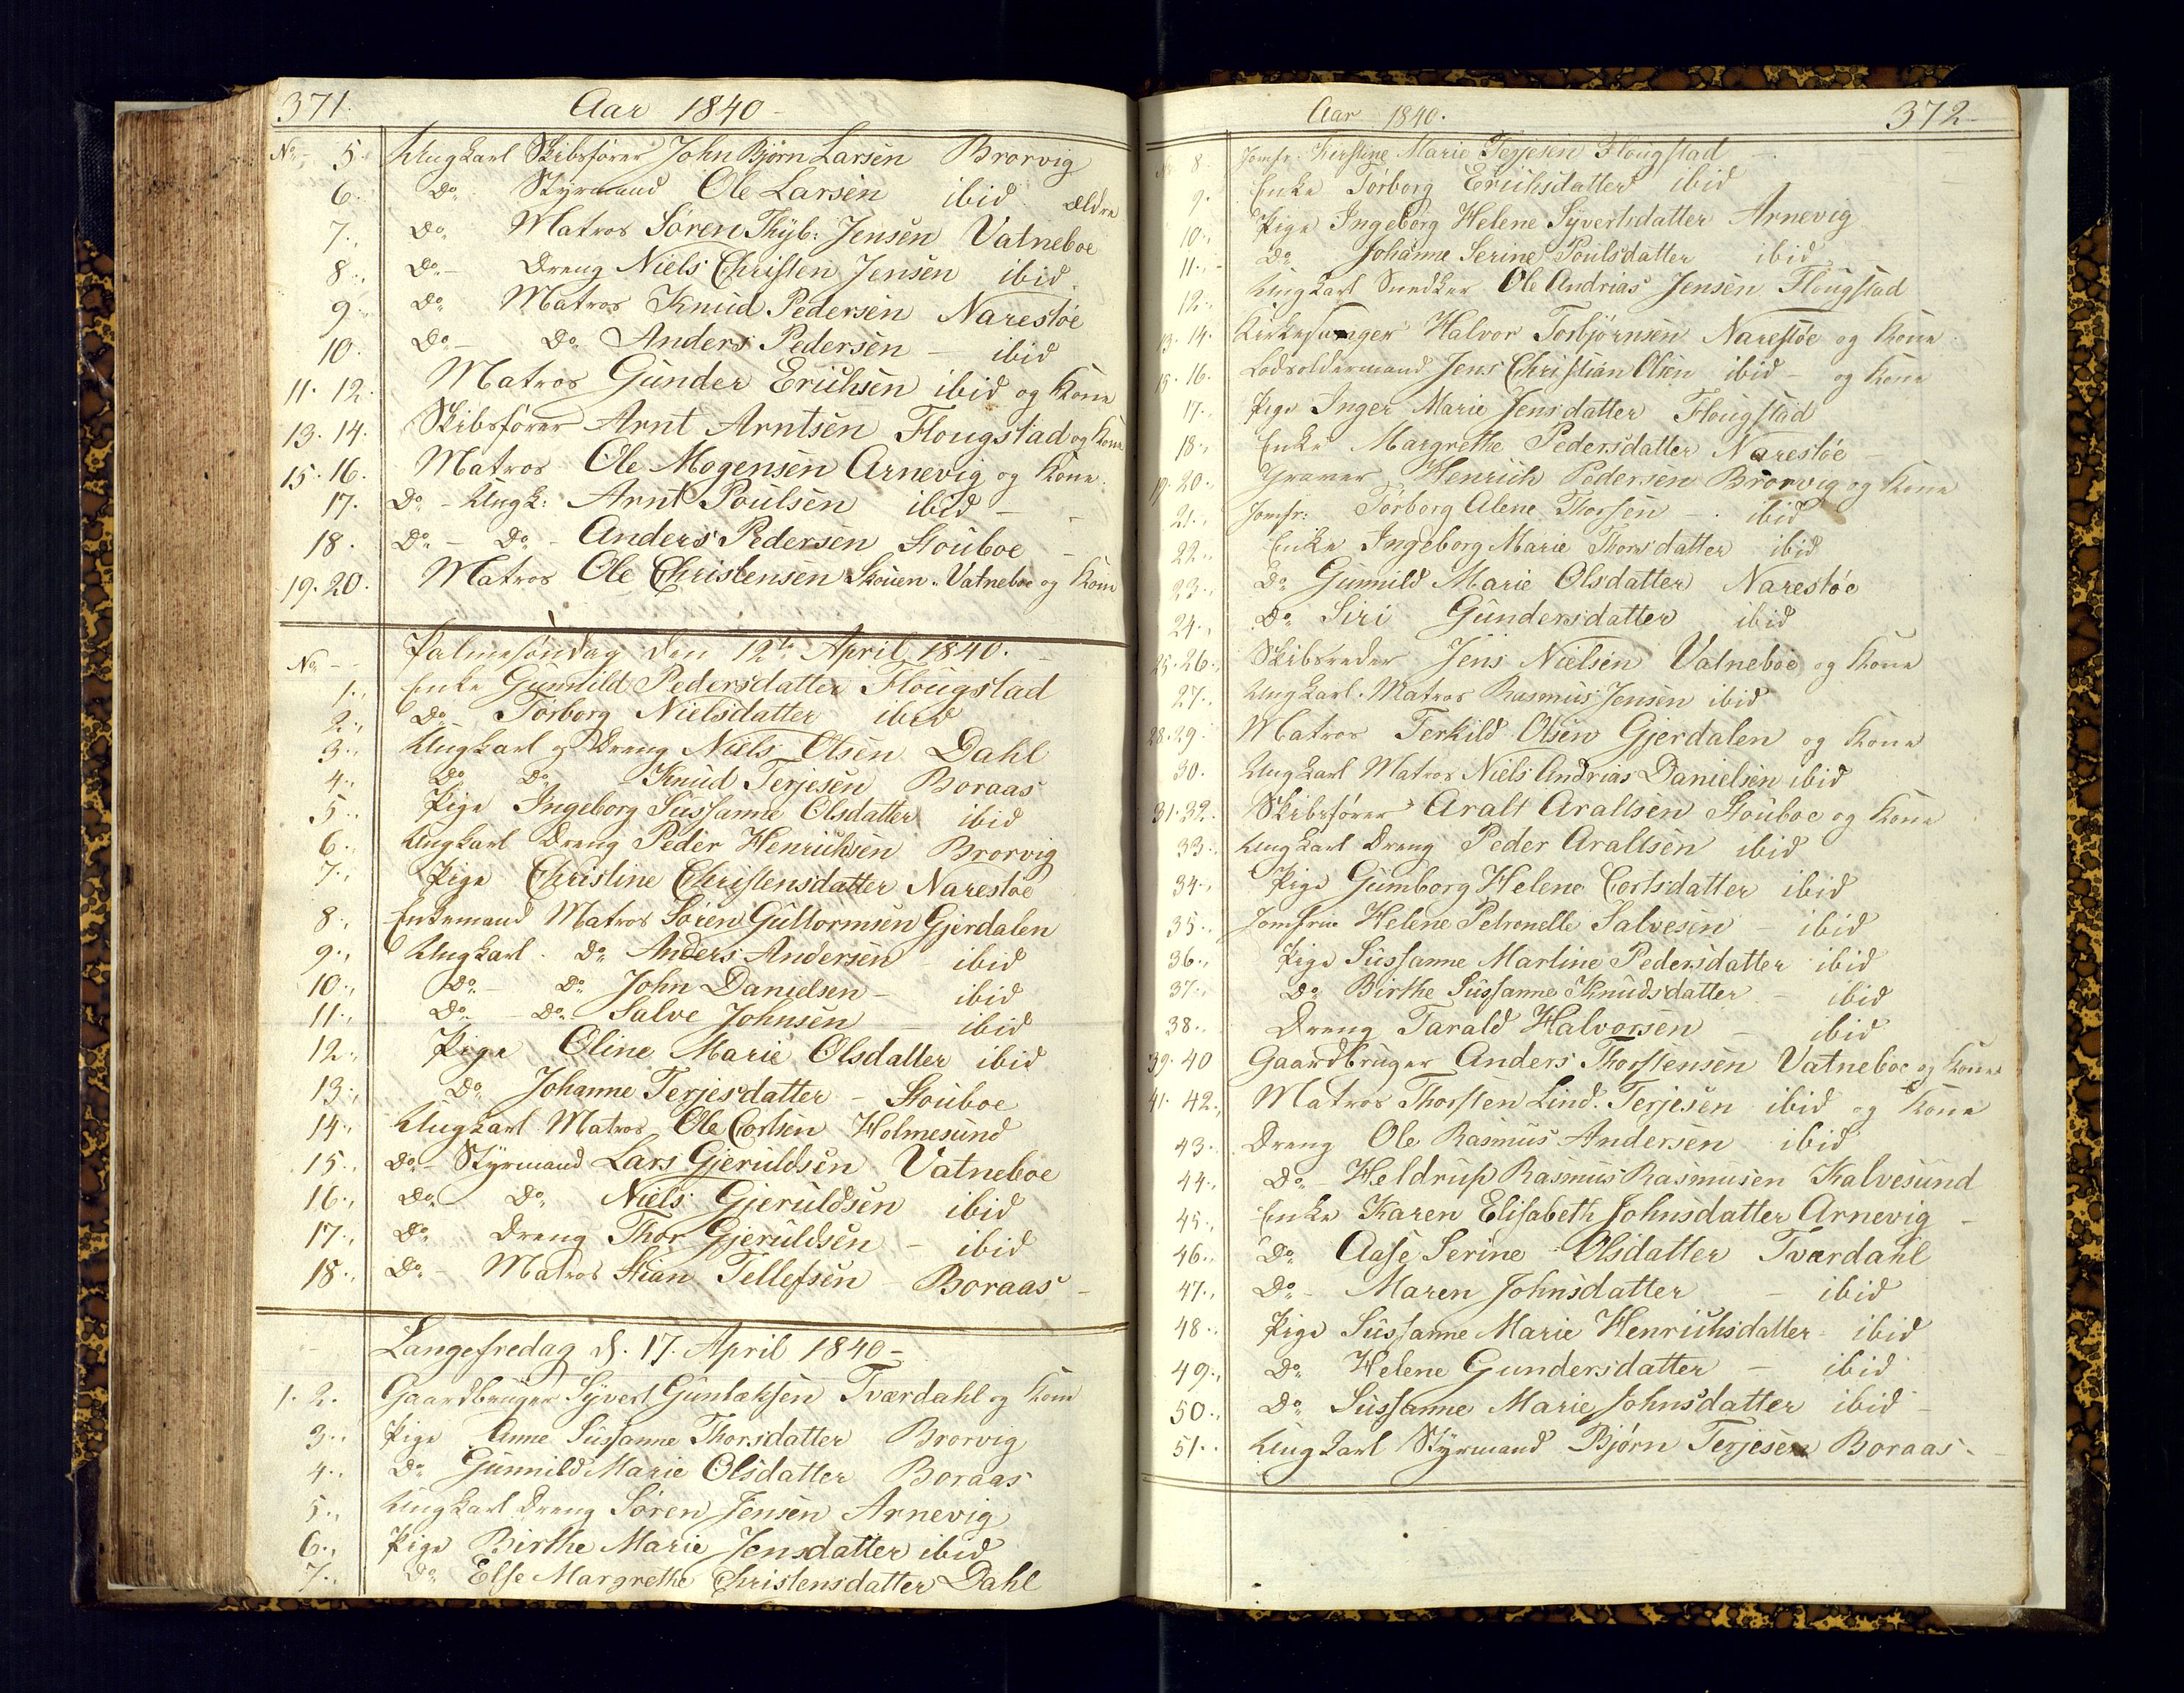 371.
Aar 1840
No 5. Ungkarl Skibsfører John Bjørn Larsen Brorvig
6. Do Styrmand Ole Larsen ibid ældre
7. Do Matros Søren Thÿb: Jensen Vatneboe
8. Do Dreng Niels Christen Jensen ibid
9. Do Matros Knud Pedersen Narestøe
10. Do Do Anders Pedersen ibid
11. 12. Matros Gunder Erichsen ibid og Kone
13. 14. Skibsfører Arnt Arntsen Flougstad og Kone
15. 16. Matros Ole Mogensen Arnevig og Kone
17. Do Ungk: Arnt Poulsen ibid
18. Do Do Anders Pedersen Stouboe
19. 20. Matros Ole Christensen Skouen Vatneboe og Kone
Palmesøndag den 12te April 1840.
No
1. Enke Gunnild Pedersdatter Flougstad
2. Do Torborg Nielsdatter ibid
3. Ungkarl og Dreng Niels Olsen Dahl
4. Do Do Knud Terjesen Boraas
5. Pige Ingeborg Sussanne Olsdatter ibid
6. Ungkarl Dreng Peder Henrichsen Brorvig
7. Pige Christine Christensdatter Narestøe
8. Enkemand Matros Søren Guttormsen Gjerdalen
9. Ungkarl Do Anders Andersen ibid
10. Do Do John Danielsen ibid
11. Do Do Salve Johnsen ibid
12. Pige Oline Marie Olsdatter ibid
13. Do Johanne Terjesdatter Stouboe
14. Ungkarl Matros Ole Cortsen Holmesund
15. Do Styrmand Lars Gjeruldsen Vatneboe
16. Do Do Niels Gjeruldsen ibid
17. Do Dreng Thor Gjeruldsen ibid
18. Do Matros Stian Tellefsen Boraas
Langefredag d. 17. April 1840
1. 2. Gaardbruger Syvert Guntaksen Tværdahl og Kone
3. Pige Anne Sussanne Thorsdatter Brorvig
4. Do Gunnild Marie Olsdatter Boraas
5. Ungkarl Dreng Søren Jensen Arnevig
6. Pige Birthe Marie Jensdatter ibid
7. Do Else Margrethe Christensdatter Dahl
Aar 1840.
372
No 8. Jomfr: Kirstine Marie Terjesen Flougstad
9. Enke Torborg Erichsdatter ibid
10. Pige Ingeborg Helene Syvertsdatter Arnevig
11. Do Johanne Serine Poulsdatter ibid
12. Ungkarl Snedker Ole Andrias Jensen Flougstad
13. 14. Kirkesanger Halvor Torbjørnsen Narestøe og Kone
15. 16. Lodsoldermand Jens Christian Olsen ibid og Kone
17. Pige Inger Marie Jensdatter Flougstad
18. Enke Margrethe Pedersdatter Narestøe
19. 20. Graver Henrich Pedersen Brorvig og Kone
21. Jomfr: Torborg Alene Thorsen ibid
22. Enke Ingeborg Marie Thorsdatter ibid
23. Do Gunnild Marie Olsdatter Narestøe
24. Do Siri Gundersdatter ibid
25. 26. Skibsreder Jens Nielsen Vatneboe og Kone
27. Ungkarl Matros Rasmus Jensen ibid
28. 29. Matros Terkild Olsen Gjerdalen og Kone
30. Ungkarl Matros Niels Andrias Danielsen ibid
31. 32. Skibsfører Aralt Araltsen Stouboe og Kone
33. Ungkarl Dreng Peder Araltsen ibid
34. Pige Gumborg Helene Cortsdatter ibid
35. Jomfrue Helene Petronelle Salvesen ibid
36. Pige Sussanne Martine Pedersdatter ibid
37. Do Birthe Sussanne Knudsdatter ibid
38. Dreng Tarald Halvorsen ibid
39. 40 Gaardbruger Anders Thorstensen Vatneboe og Kone
41. 42. Matros Thorsten Lind. Terjesen ibid og Kone
43. Dreng Ole Rasmus Andersen ibid
44. Do Heldrup Rasmus Rasmusen Kalvesund
45. Enke Karen Elisabeth Johnsdatter Arnevig
46. Do Aase Serine Olsdatter Tværdahl
47. Do Maren Johnsdatter ibid
48. Pige Sussanne Marie Henrichsdatter ibid
49. Do Helene Gundersdatter ibid
50. Do Sussanne Marie Johnsdatter ibid
51. Ungkarl Styrmand Bjørn Terjesen Boraas